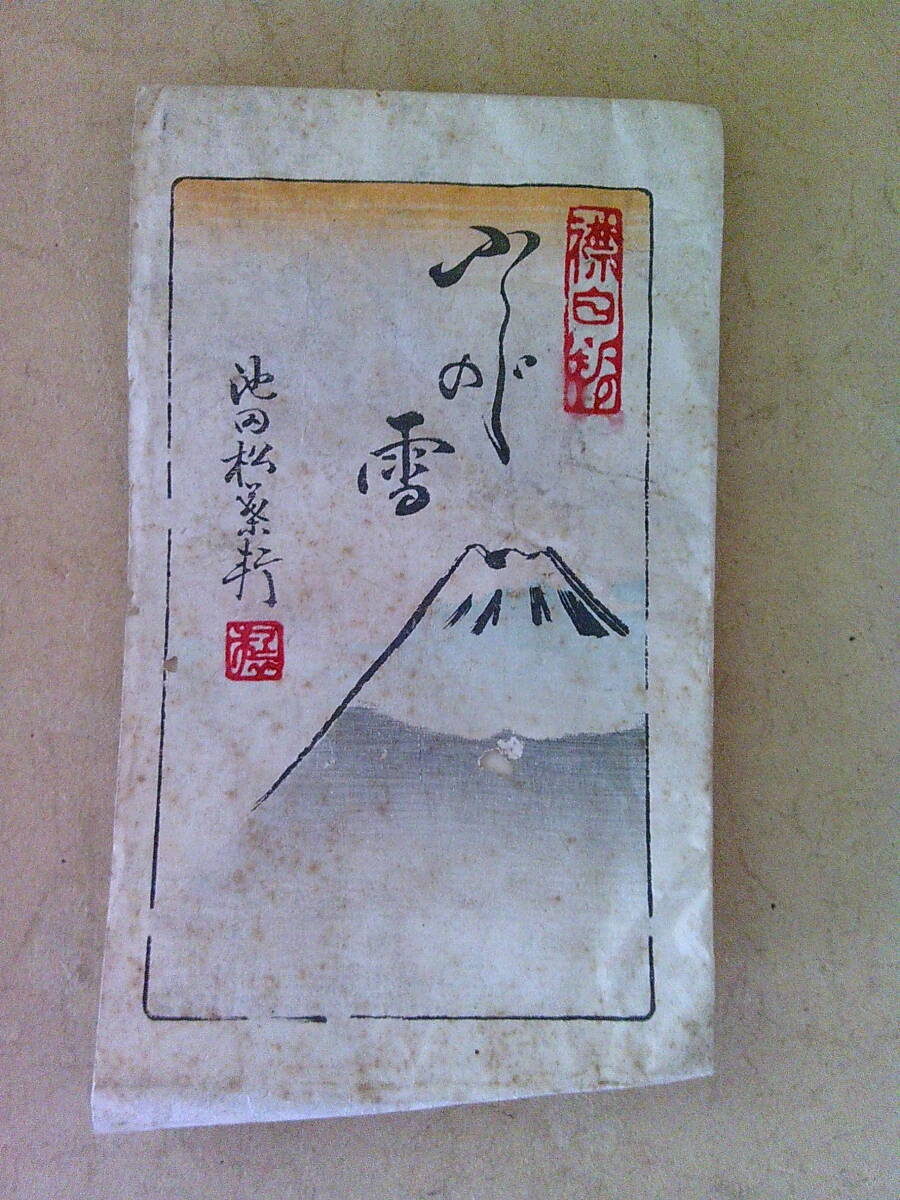 襟白粉
ふじの雪
池田松葉軒